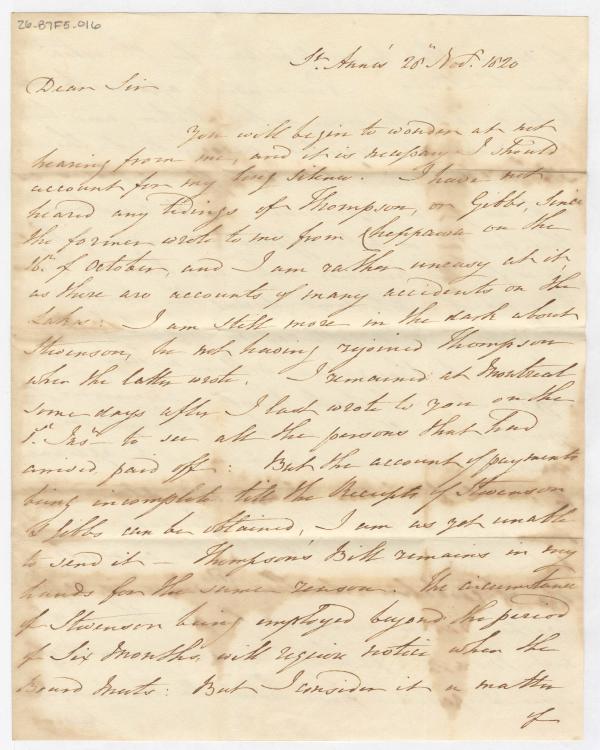 26-87F5-016
St. Ann's 28th Novr. 1820
Dear Sir
You will begin to wonder at not
hearing from me, and it is necessary I should
account for my long silence. I have not
heard any tidings of Thompson, or Gibbs, since
the former wrote to me from Cheppawa on the
16th. of October, and I am rather uneasy at it,
as there are accounts of many accidents on the
Lakes: I am still more in the dark about
Stevenson, he not having rejoined Thompson
when the latter wrote. I remained at Montreal
some days after I last wrote to you on the
1st. to see all the persons that had
arrived paid off: But the account of payments
being incomplete till the Receipts of Stevenson
& Gibbs can be obtained, I am as yet unable
to send it — Thompson's Bill remains in my
hands for the same reason. The circumstance
of Stevenson being employed beyond the period
of Six Months, will require notice when the
Board Meets: But I consider it a matter
of